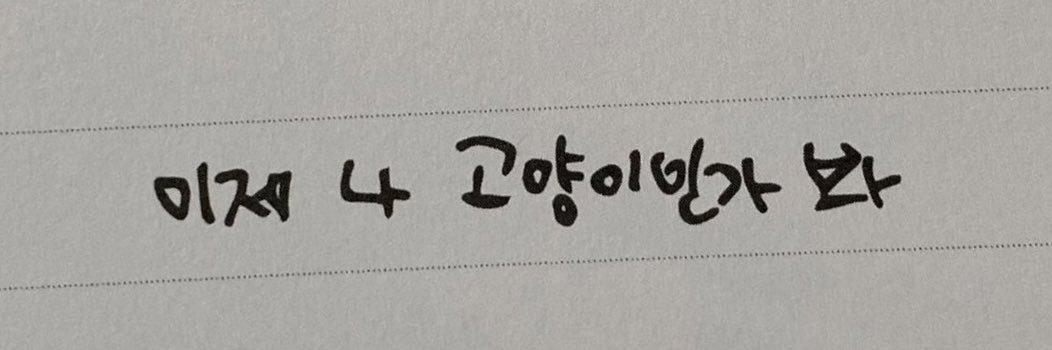 이제 나 고양이인가 봐